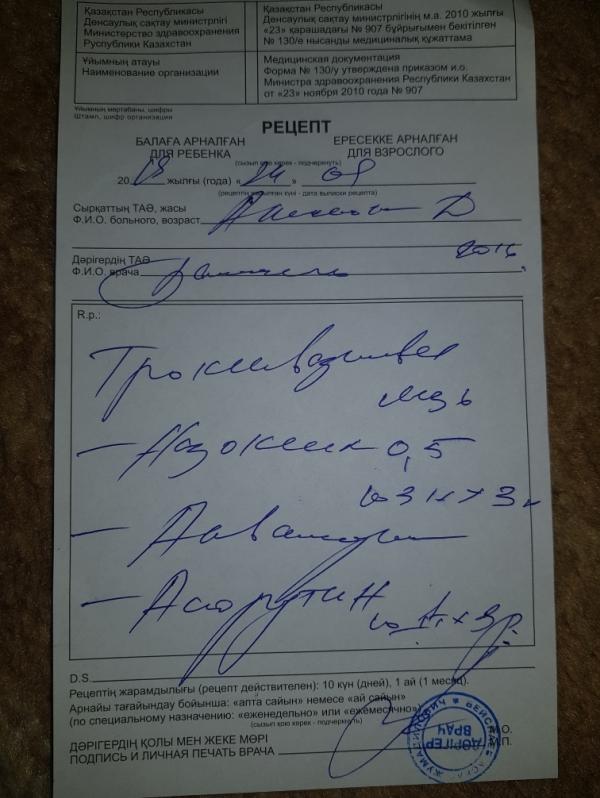 Қазақстан Республикасы
Денсаулық сақтау министрлігі
Министерство здравоохранения
Руспублики Казахстан
Қазақстан Республикасы
Денсаулық сақтау министрлігінің м.а. 2010 жылғы
«23» қарашадағы № 907 бұйрығымен бекітілген
№ 130/е нысанды медициналық құжаттама
Ұйымның атауы
Наименование организации
Медицинская документация
Форма № 130/у утверждена приказом и.о.
Министра здравоохранения Республики Казахстан
от «23» ноября 2010 года № 907
Ұйымның мөртабаны, шифры
Штамп, шифр организации
РЕЦЕПТ
БАЛАҒА АРНАЛҒАН
ДЛЯ РЕБЕНКА
ЕРЕСЕККЕ АРНАЛҒАН
ДЛЯ ВЗРОСЛОГО
(сызып қою керек - подчеркнуть)
2018 жылғы (года) «24» 09
(рецептің жазылған күні - дата выписки рецепта)
Сырқаттың ТАӘ, жасы
Ф.И.О. больного, возраст Д
2016
Дәрігердің ТАӘ
Ф.И.О. врача
R.p.:
Троксевазиновая
мазь
- 0,5
3 к х 3
- Аквамарис
- Аскорутин
D.S.
Рецептің жарамдылығы (рецепт действителен): 10 күн (дней), 1 ай (1 месяц).
Арнайы тағайындау бойынша: «апта сайын» немесе «ай сайын»
(по специальному назначению: «еженедельно» или «ежемесячно»)
(сызып қою керек - подчеркнуть)
ДӘРІГЕРДІҢ ҚОЛЫ МЕН ЖЕКЕ МӨРІ
ПОДПИСЬ И ЛИЧНАЯ ПЕЧАТЬ ВРАЧА
М.О.
М.П.
ДӘРІГЕР
ВРАЧ